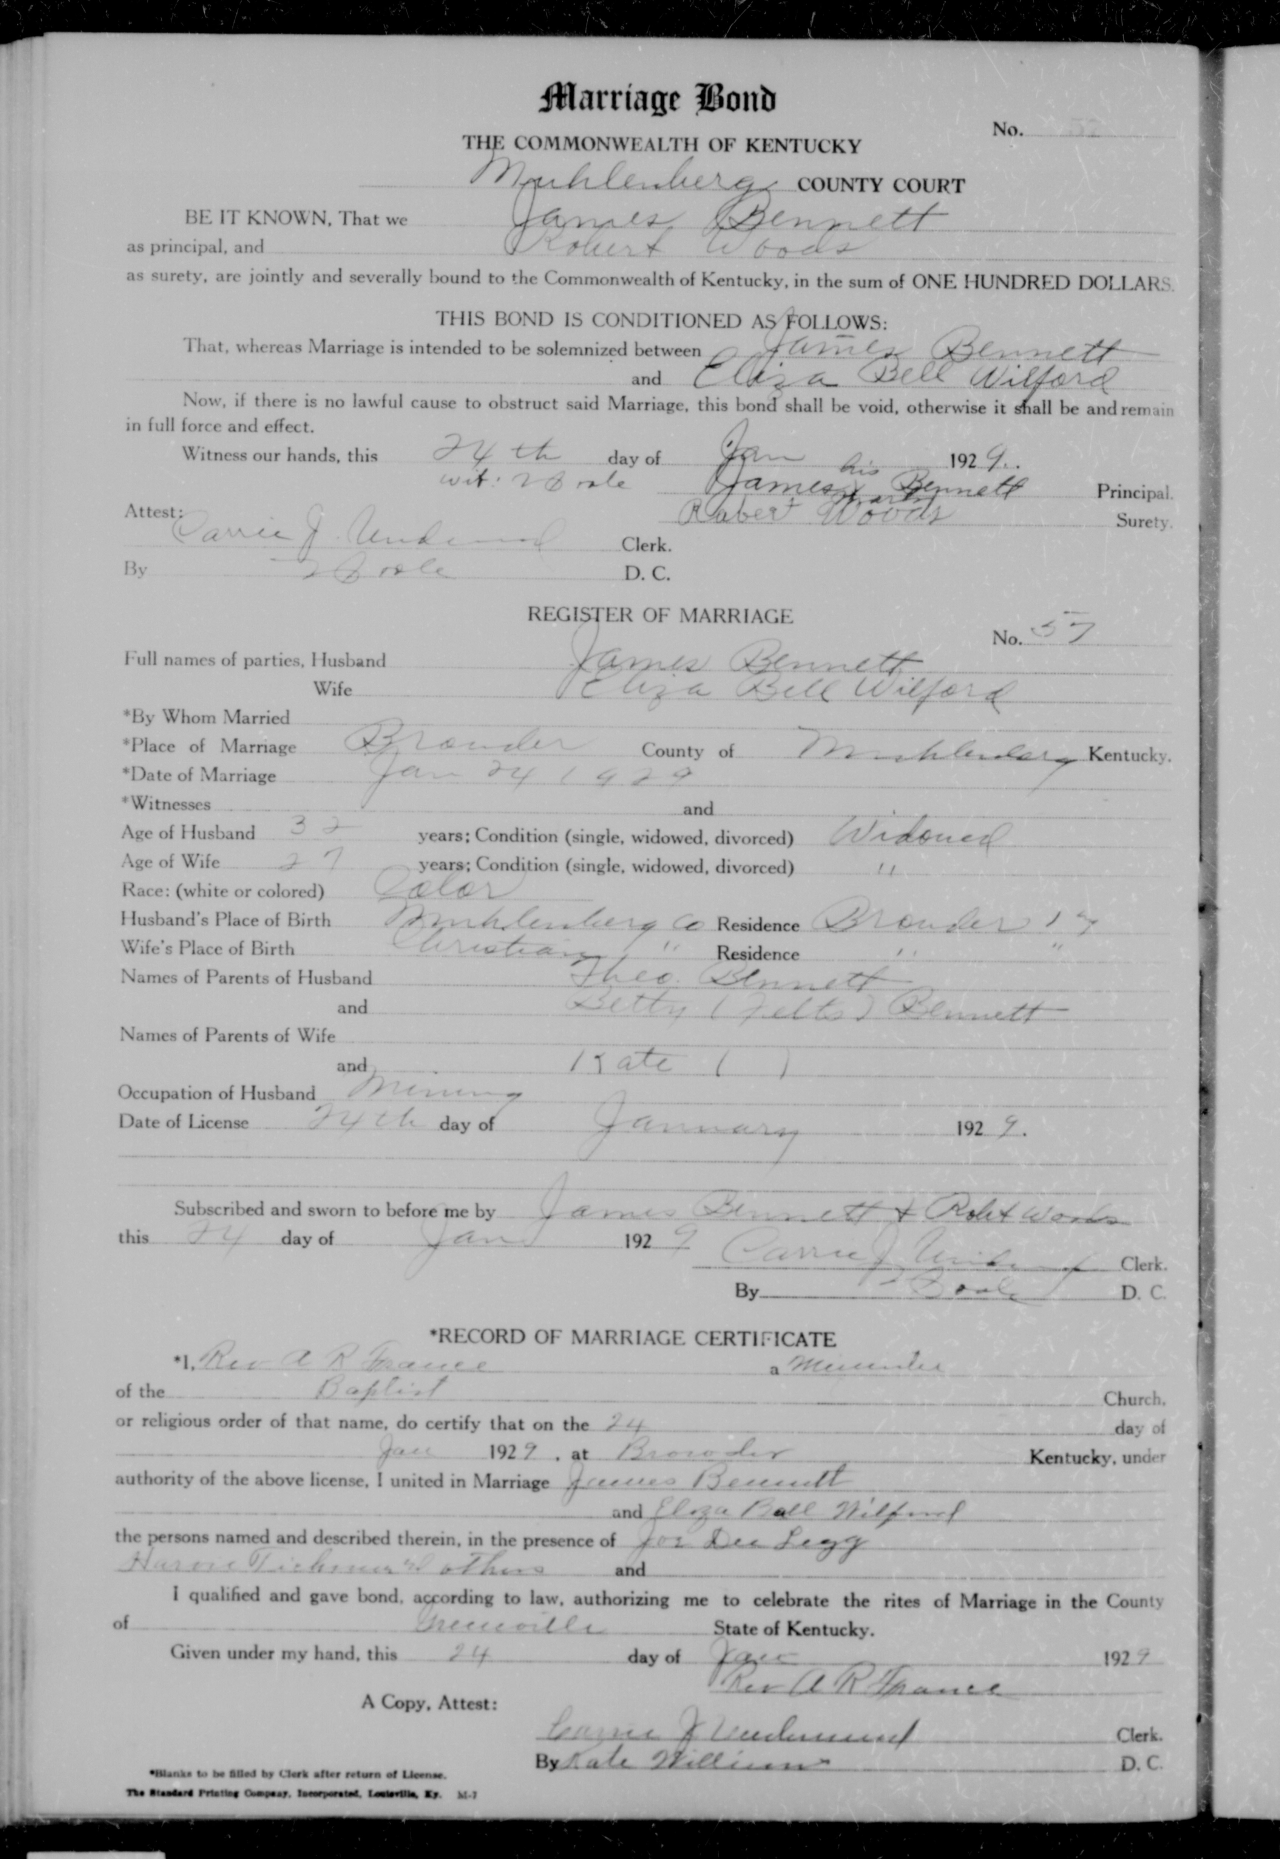 Marriage Bond
No.
THE COMMONWEALTH OF KENTUCKY
Muhlenberg COUNTY COURT
BE IT KNOWN, That we James Bennett
as principal, and Robert Woods
as surety, are jointly and severally bound to the Commonwealth of Kentucky, in the sum of ONE HUNDRED DOLLARS.
THIS BOND IS CONDITIONED AS FOLLOWS:
That, whereas Marriage is intended to be solemnized between James Bennett
and Eliza Bell Wilford
Now, if there is no lawful cause to obstruct said Marriage, this bond shall be void, otherwise it shall be and remain
in full force and effect.
Witness our hands, this 24th day of Jan 1929.
wit: James his x mark Bennett Principal.
Attest: Robert Woods Surety.
Carrie J. Underwood Clerk.
By D. C.
REGISTER OF MARRIAGE
No. 57
Full names of parties, Husband James Bennett
Wife Eliza Bell Wilford
*By Whom Married
*Place of Marriage Browder County of Muhlenberg Kentucky.
*Date of Marriage Jan 24 1929
*Witnesses and
Age of Husband 32 years; Condition (single, widowed, divorced) Widowed
Age of Wife 27 years; Condition (single, widowed, divorced) "
Race: (white or colored) Color
Husband's Place of Birth Muhlenberg Co Residence Browder Ky
Wife's Place of Birth Christian " Residence " "
Names of Parents of Husband Theo. Bennett
and Betty (Felts) Bennett
Names of Parents of Wife
and Kate ( )
Occupation of Husband Mining
Date of License 24th day of January 1929.
Subscribed and sworn to before me by James Bennett & Robt Woods
this 24 day of Jan 1929 Carrie J. Underwood Clerk.
By D. C.
*RECORD OF MARRIAGE CERTIFICATE
*I, Rev A R France a Minister
of the Baptist Church,
or religious order of that name, do certify that on the 24 day of
Jan 1929, at Browder Kentucky, under
authority of the above license, I united in Marriage James Bennett
and Eliza Bell Wilford
the persons named and described therein, in the presence of Joe Dee Legg
others and
I qualified and gave bond, according to law, authorizing me to celebrate the rites of Marriage in the County
of Greenville State of Kentucky.
Given under my hand, this 24 day of Jan 1929
Rev A R France
A Copy, Attest:
Carrie J Underwood Clerk.
By Kate Williams D. C.
*Blanks to be filled by Clerk after return of License.
The Standard Printing Company, Incorporated, Louisville, Ky. M-7